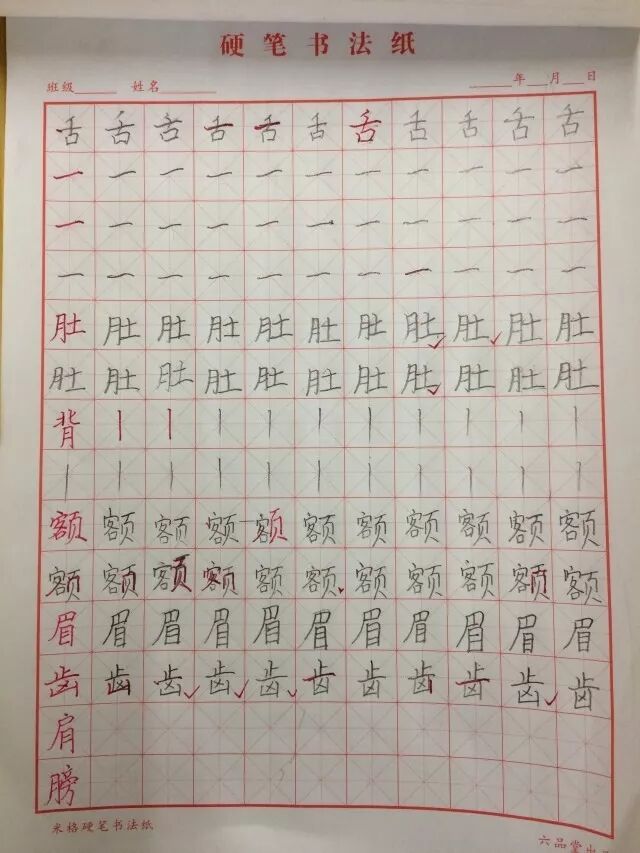 硬笔书法纸
班级 姓名 年 月 日
舌舌舌舌舌舌舌舌舌舌舌
一一一一一一一一一一一
一一一一一一一一一一一
一一一一一一一一一一一
肚肚肚肚肚肚肚肚肚肚肚
肚肚肚肚肚肚肚肚肚肚肚
背丨丨丨丨丨丨丨丨丨丨
丨丨丨丨丨丨丨丨丨丨丨
额额额额额额额额额额额
额额额额额额额额额额额
眉眉眉眉眉眉眉眉眉眉眉
齿齿齿齿齿齿齿齿齿齿齿
肩
膀
米格硬笔书法纸 六品堂出